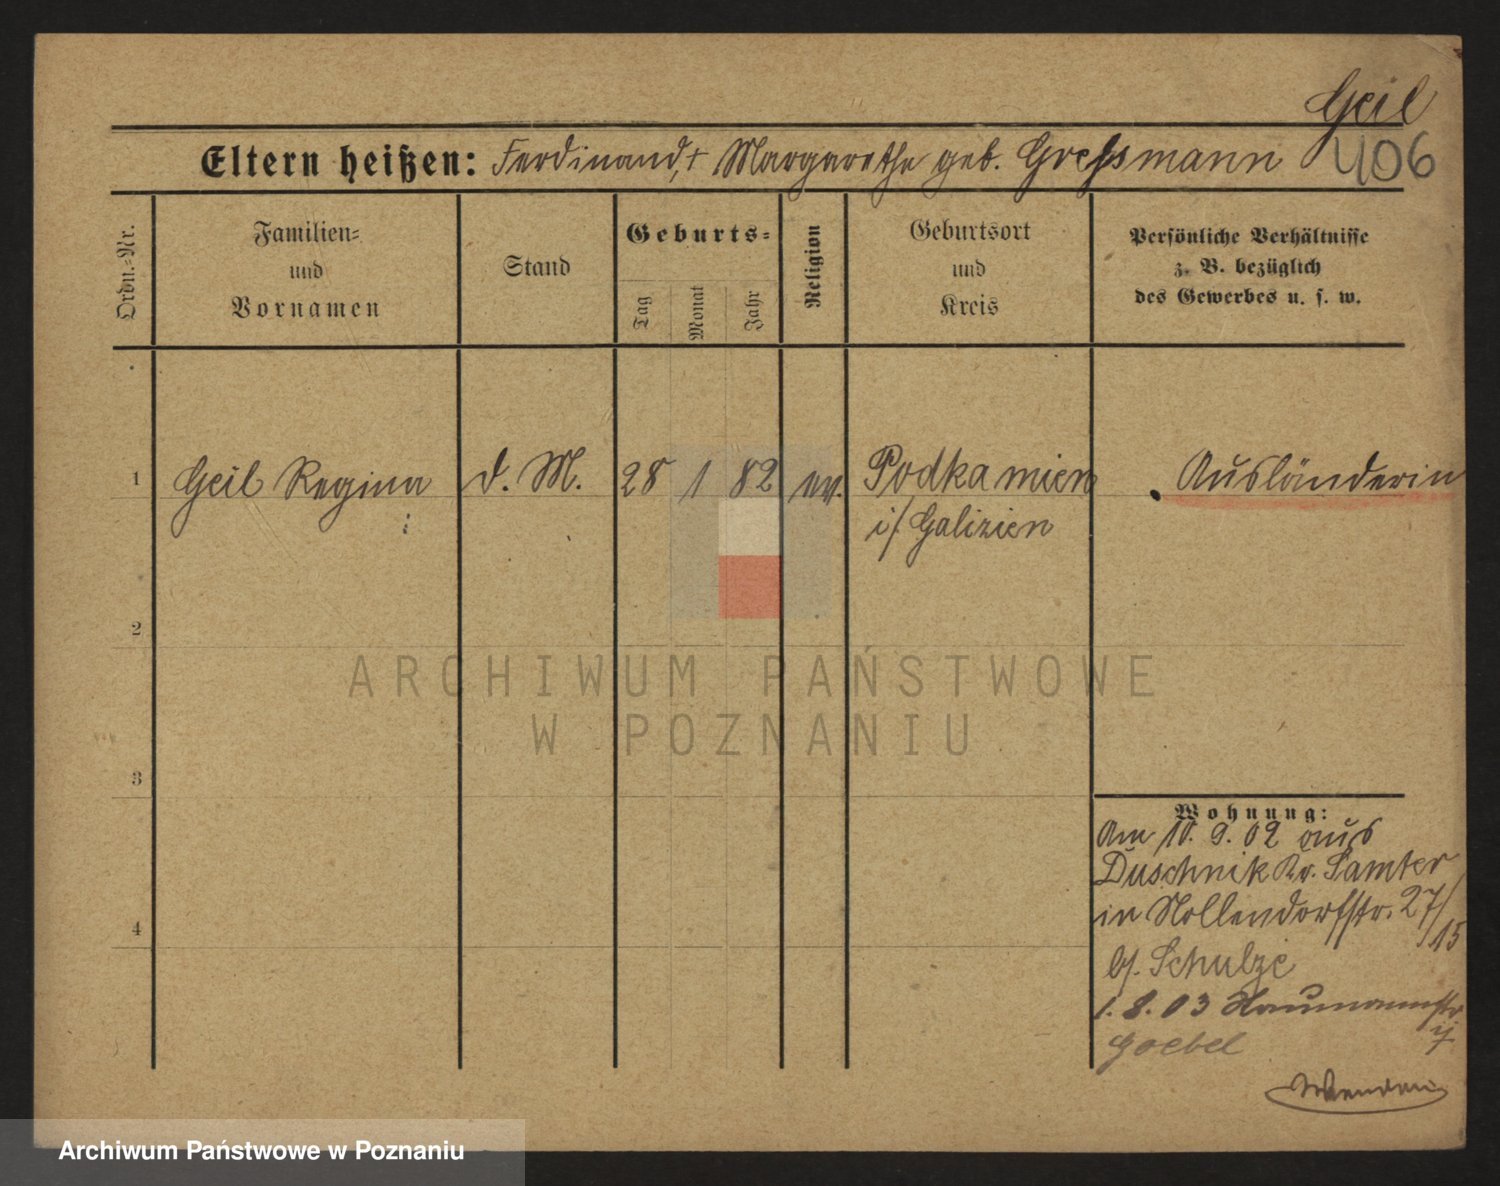 Geil
406
Eltern heißen: Ferdinand, † Margarethe geb. Gressmann
Ordn.-Nr.
Familien-
und
Vornamen
Stand
Geburts-
Tag
Monat
Jahr
Religion
Geburtsort
und
Kreis
Persönliche Verhältnisse
z. B. bezüglich
des Gewerbes u. s. w.
1 Geil Regina d. M. 28 1 82 ev. Podkamien Ausländerin
i/. Galizien
2
ARCHIWUM PAŃSTWOWE
W POZNANIU
3
Wohnung:
Am 10. 9. 02 aus
Duschnik Kr. Samter
in Nollendorfstr. 27/
15
b/. Schulze
4
1. 8. 03 Naumannstr
Goebel
Archiwum Państwowe w Poznaniu